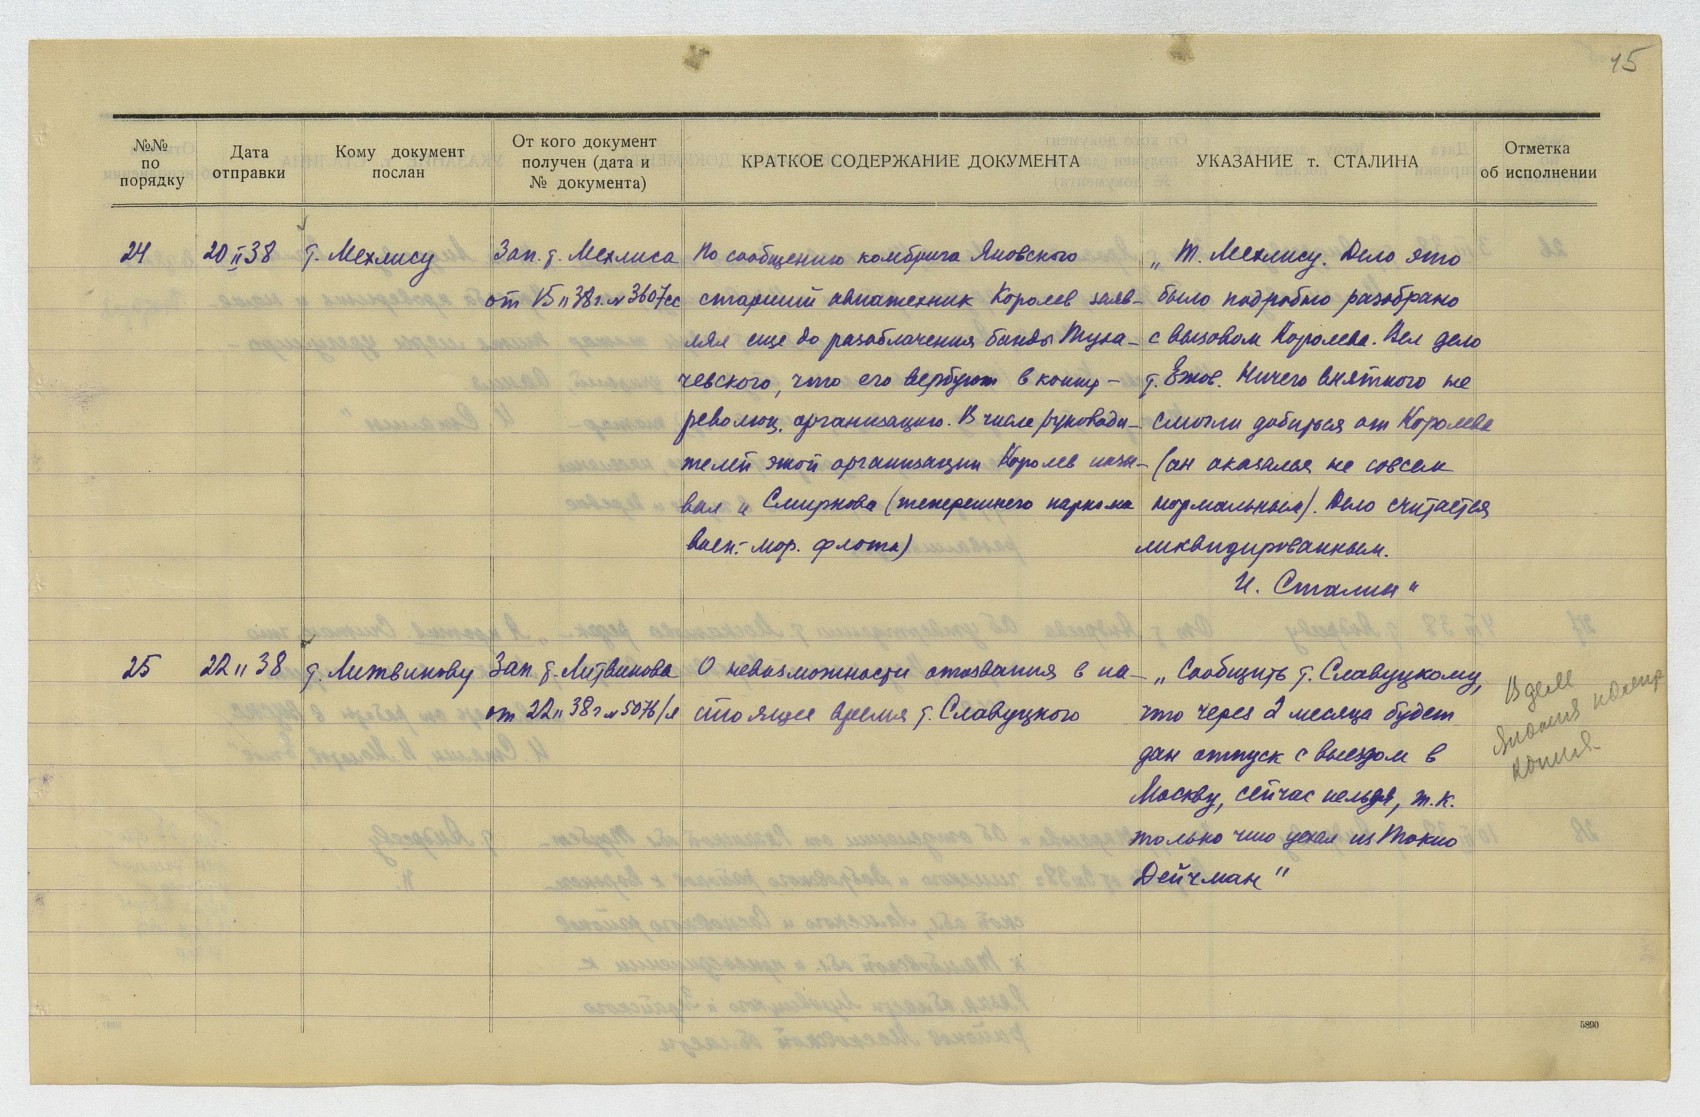 15
№№
по
порядку
Дата
отправки
Кому документ
послан
От кого документ
получен (дата и
№ документа)
КРАТКОЕ СОДЕРЖАНИЕ ДОКУМЕНТА
УКАЗАНИЕ т. СТАЛИНА
Отметка
об исполнении
24
20 II 38
т. Мехлису
Зап. т. Мехлиса
от 15 II 38 г. № 3607сс
По сообщению комбрига Яновского
старший авиатехник Королев заяв-
лял еще до разоблачения банды Туха-
чевского, что его вербуют в контр-
революц. организацию. В числе руководи-
телей этой организации Королев назы-
вал и Смирнова (теперешнего наркома
Воен.-мор. флота)
„Т. Мехлису. Дело это
было подробно разобрано
с вызовом Королева. Вел дело
т. Ежов. Ничего внятного не
смогли добиться от Королева
(он оказался не совсем
нормальным). Дело считается
ликвидированным.
И. Сталин"
25
22 II 38
т. Литвинову
Зап. т. Литвинова
от 22 II 38 г № 5076/л
О невозможности отозвания в на-
стоящее время т. Славуцкого
„Сообщить т. Славуцкому,
что через 2 месяца будет
дан отпуск с выездом в
Москву, сейчас нельзя, т.к.
только что уехал из Токио
Дейчман"
В деле
Япония
копия
5890